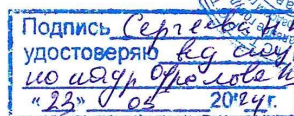 Подпись Сергеевой
удостоверяю вед
по кадр Фролова
"23" 05 2024г.